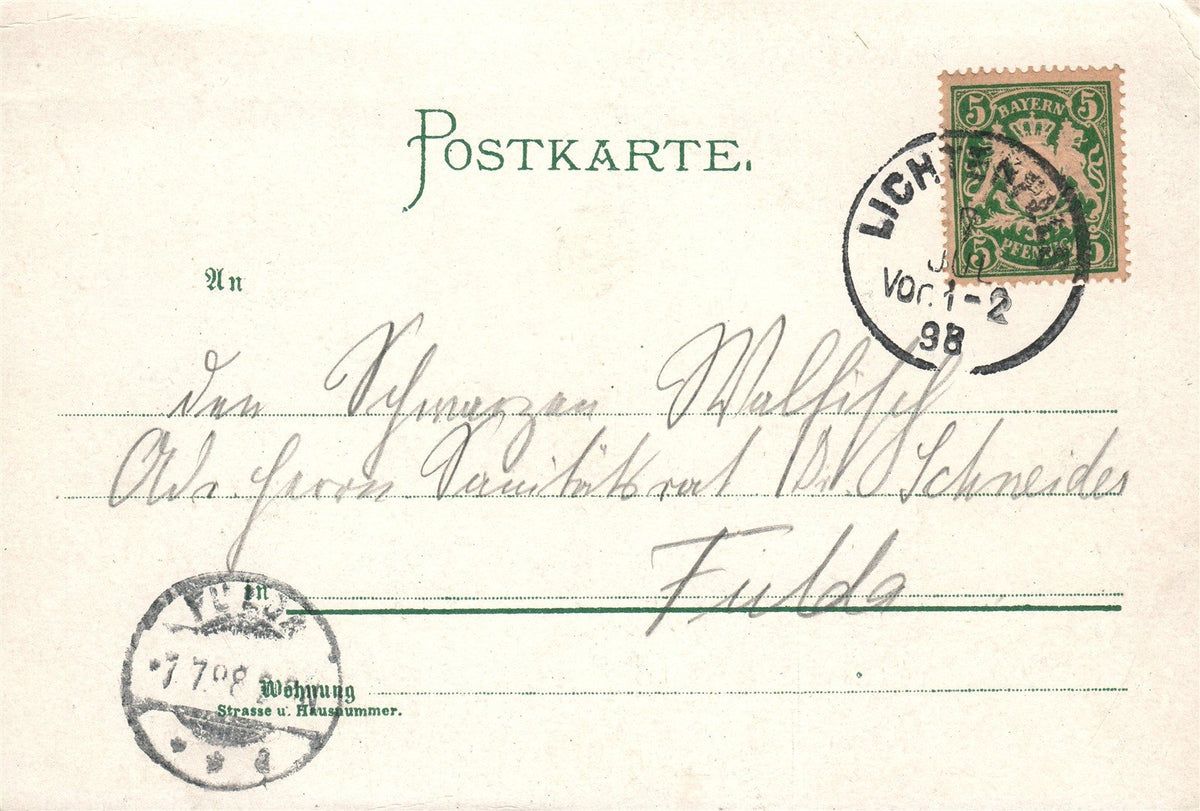 POSTKARTE.
5 BAYERN 5
5 PFENNIG 5
JUL
Vor. 1-2
98
An
den Schwarzen Walfisch
Adr. Herrn Sanitätsrat Dr. Schneider
Fulda
in
FULDA
*7 7 98
Wohnung
Strasse u. Hausnummer.
* * a